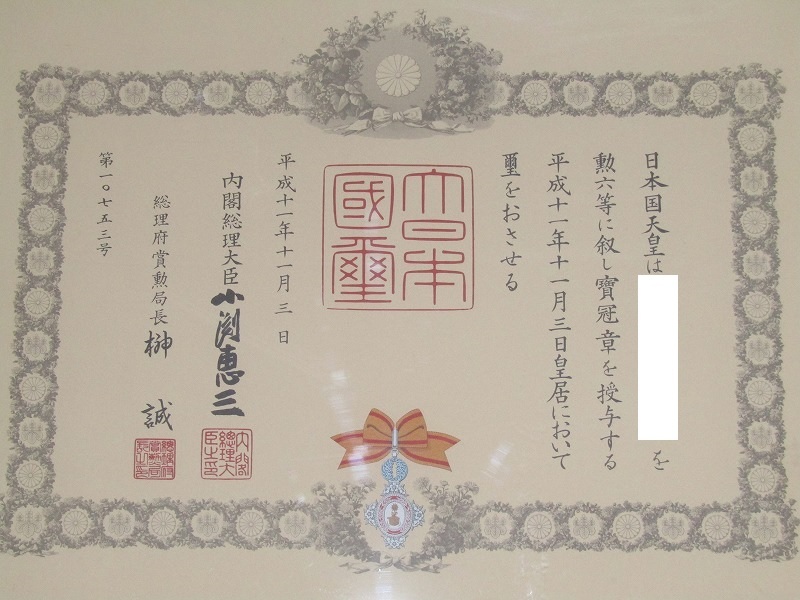 日本国天皇は
を
勲六等に叙し寶冠章を授与する
平成十一年十一月三日皇居において
璽をおさせる
大日本
國璽
平成十一年十一月三日
内閣総理大臣小渕恵三
内閣
總理大
臣之印
総理府賞勲局長榊誠
總理府
賞勲局
長之印
第一〇七五三号